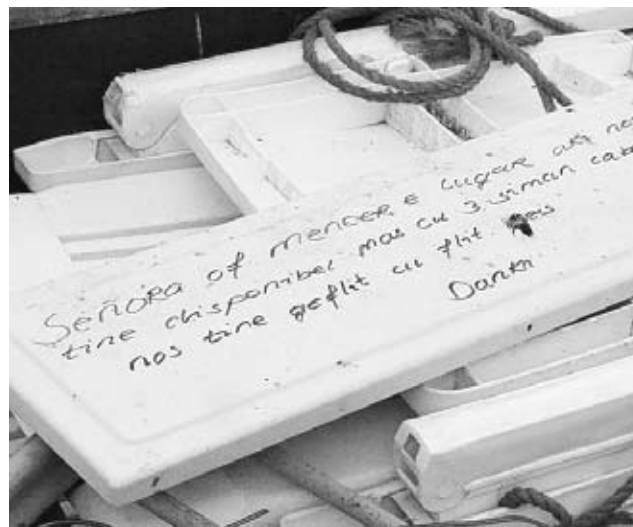 SEÑORA of MENEER E LUGAR aki nos
tine disponibel mas cu 3 siman caba
nos tine geflit cu flit. Reis
Danki